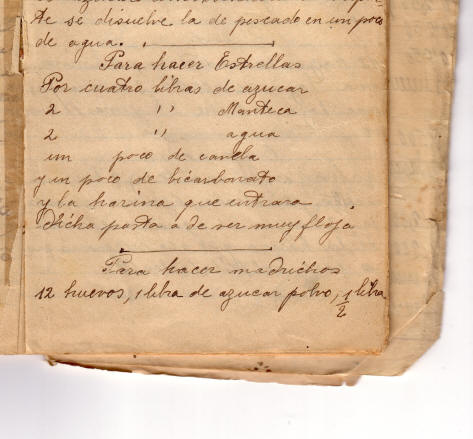 te se disuelve la de pescado en un poco
de agua.
Para hacer Estrellas
Por cuatro libras de azucar
2 " Manteca
2 " agua
un poco de canela
y un poco de bicarbonato
y la harina que entrara
Dicha pasta a de ser muy floja
Para hacer madrichos
12 huevos, 1 libra de azucar polvo, 1/2 libra